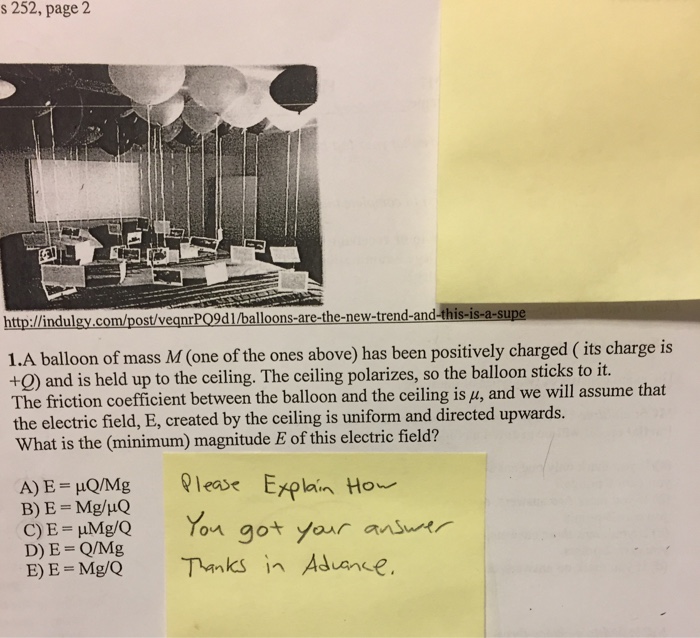 s 252, page 2
http://indulgy.com/post/veqnrPQ9d1/balloons-are-the-new-trend-and-this-is-a-supe
1.A balloon of mass M (one of the ones above) has been positively charged ( its charge is
+Q) and is held up to the ceiling. The ceiling polarizes, so the balloon sticks to it.
The friction coefficient between the balloon and the ceiling is μ, and we will assume that
the electric field, E, created by the ceiling is uniform and directed upwards.
What is the (minimum) magnitude E of this electric field?
A) E = μQ/Mg
B) E = Mg/μQ
C) E = μMg/Q
D) E = Q/Mg
E) E = Mg/Q
Please Explain How
You got your answer
Thanks in Advance.